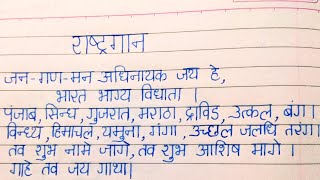 राष्ट्रगान
जन-गण-मन अधिनायक जय हे,
भारत भाग्य विधाता ।
पंजाब, सिन्ध, गुजरात, मराठा, द्राविड़, उत्कल, बंग ।
विन्ध्य, हिमाचल, यमुना, गंगा, उच्छल जलधि तरंग।
तव शुभ नामे जागे, तव शुभ आशिष मागे ।
गाहे तव जय गाथा।